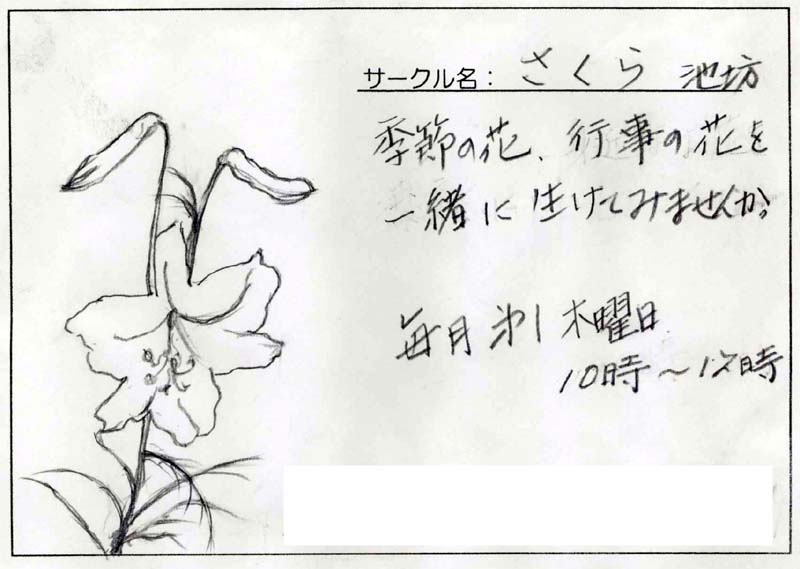 サークル名： さくら 池坊
季節の花、行事の花を
一緒に生けてみませんか。
毎月第1木曜日
10時～12時